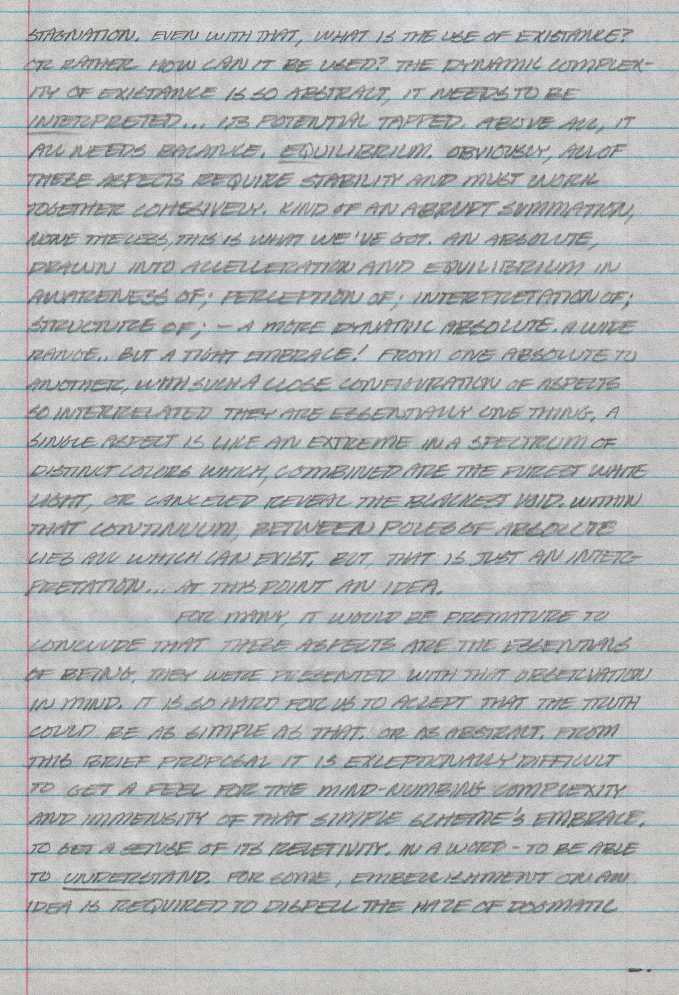 STAGNATION. EVEN WITH THAT, WHAT IS THE USE OF EXISTANCE?
OR RATHER HOW CAN IT BE USED? THE DYNAMIC COMPLEX-
ITY OF EXISTANCE IS SO ABSTRACT, IT NEEDS TO BE
INTERPRETED... ITS POTENTIAL TAPPED. ABOVE ALL, IT
ALL NEEDS BALANCE. EQUILIBRIUM. OBVIOUSLY, ALL OF
THESE ASPECTS REQUIRE STABILITY AND MUST WORK
TOGETHER COHESIVELY. KIND OF AN ABRUPT SUMMATION,
NONE THE LESS, THIS IS WHAT WE'VE GOT. AN ABSOLUTE,
DRAWN INTO ACCELLERATION AND EQUILIBRIUM IN
AWARENESS OF; PERCEPTION OF; INTERPRETATION OF;
STRUCTURE OF; - A MORE DYNAMIC ABSOLUTE. A WIDE
RANGE.. BUT A TIGHT EMBRACE! FROM ONE ABSOLUTE TO
ANOTHER, WITH SUCH A CLOSE CONFIGURATION OF ASPECTS
SO INTERRELATED THEY ARE ESSENTIALLY ONE THING. A
SINGLE ASPECT IS LIKE AN EXTREME IN A SPECTRUM OF
DISTINCT COLORS WHICH, COMBINED ARE THE PUREST WHITE
LIGHT, OR CANCELED REVEAL THE BLACKEST VOID. WITHIN
THAT CONTINUUM, BETWEEN POLES OF ABSOLUTE
LIES ALL WHICH CAN EXIST. BUT, THAT IS JUST AN INTER-
PRETATION... AT THIS POINT AN IDEA.
FOR MANY, IT WOULD BE PREMATURE TO
CONCLUDE THAT THESE ASPECTS ARE THE ESSENTIALS
OF BEING. THEY WERE PRESENTED WITH THAT OBSERVATION
IN MIND. IT IS SO HARD FOR US TO ACCEPT THAT THE TRUTH
COULD BE AS SIMPLE AS THAT. OR AS ABSTRACT. FROM
THIS BRIEF PROPOSAL IT IS EXCEPTIONALLY DIFFICULT
TO GET A FEEL FOR THE MIND-NUMBING COMPLEXITY
AND IMMENSITY OF THAT SIMPLE SCHEME'S EMBRACE.
TO GET A SENSE OF ITS RELETIVITY. IN A WORD - TO BE ABLE
TO UNDERSTAND. FOR SOME, EMBELLISHMENT ON AN
IDEA IS REQUIRED TO DISPELL THE HAZE OF DOGMATIC